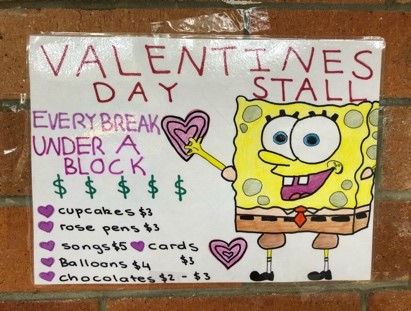 VALENTINES
DAY STALL
EVERY BREAK
UNDER A
BLOCK
$ $ $ $ $
cupcakes $3
rose pens $3
songs $5 cards
$3
Balloons $4
chocolates $2 - $3